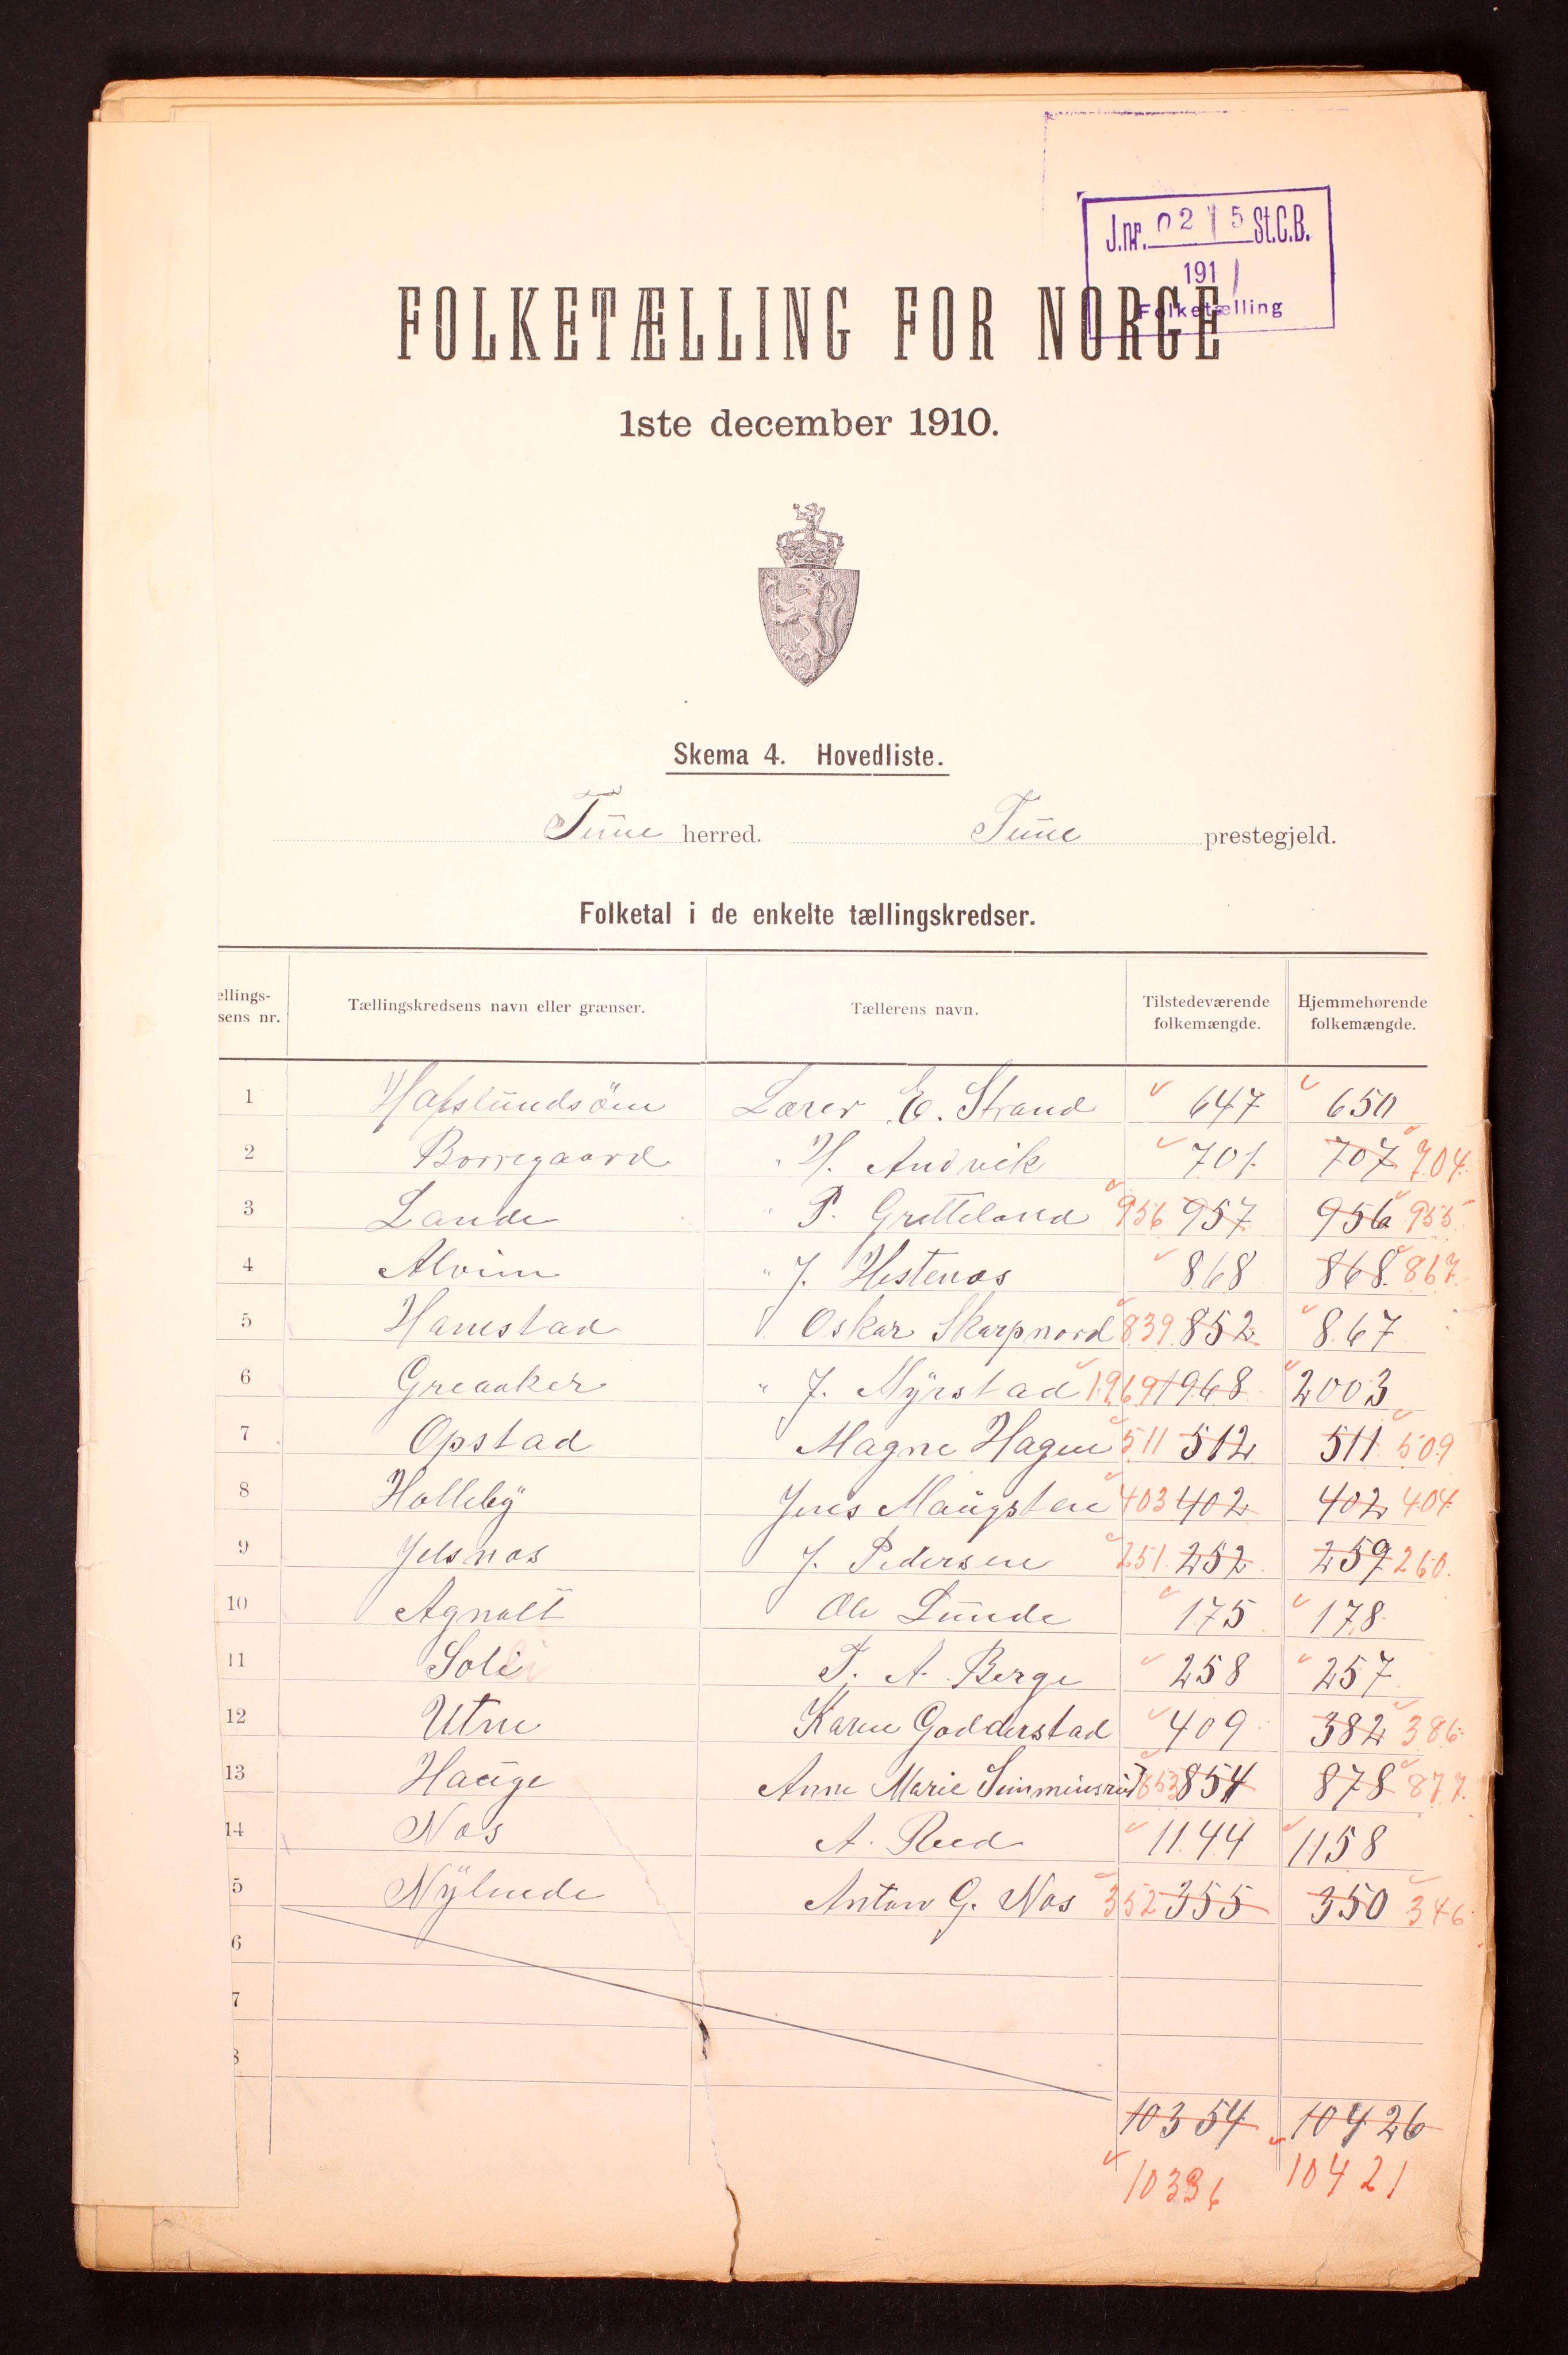 J.nr. 0215 St.C.B.
1911
Folketælling
FOLKETÆLLING FOR NORGE
1ste december 1910.
Skema 4. Hovedliste.
Tune herred. Tune prestegjeld.
Folketal i de enkelte tællingskredser.
ellings-sens nr. Tællingskredsens navn eller grænser. Tællerens navn. Tilstedeværende folkemængde. Hjemmehørende folkemængde.
1 Hafslundsöen Lærer E. Strand 647 650
2 Borregaard " H. Andvik 701 707 704
3 Lande " P. Grette­land 956 957 956 955
4 Alvim " J. Hestenæs 868 868 867
5 Hanestad Oskar Skarpnord 839 852 867
6 Greaaker " J. Nyrstad 1969 1968 2003
7 Opstad Magne Hagen 511 512 511 509
8 Holleby Jens Maugsten 403 402 402 404
9 Jelsnæs J. Pedersen 251 252 259 260
10 Agnalt Ole Lunde 175 178
11 Soli T. A. Berge 258 257
12 Utne Karen Godderstad 409 382 386
13 Hauge Anne Marie 853 854 878 877
14 Næs A. Reed 1144 1158
5 Nylende Anton G. Næs 352 355 350 346
6
7
8
10354 10426
10336 10421